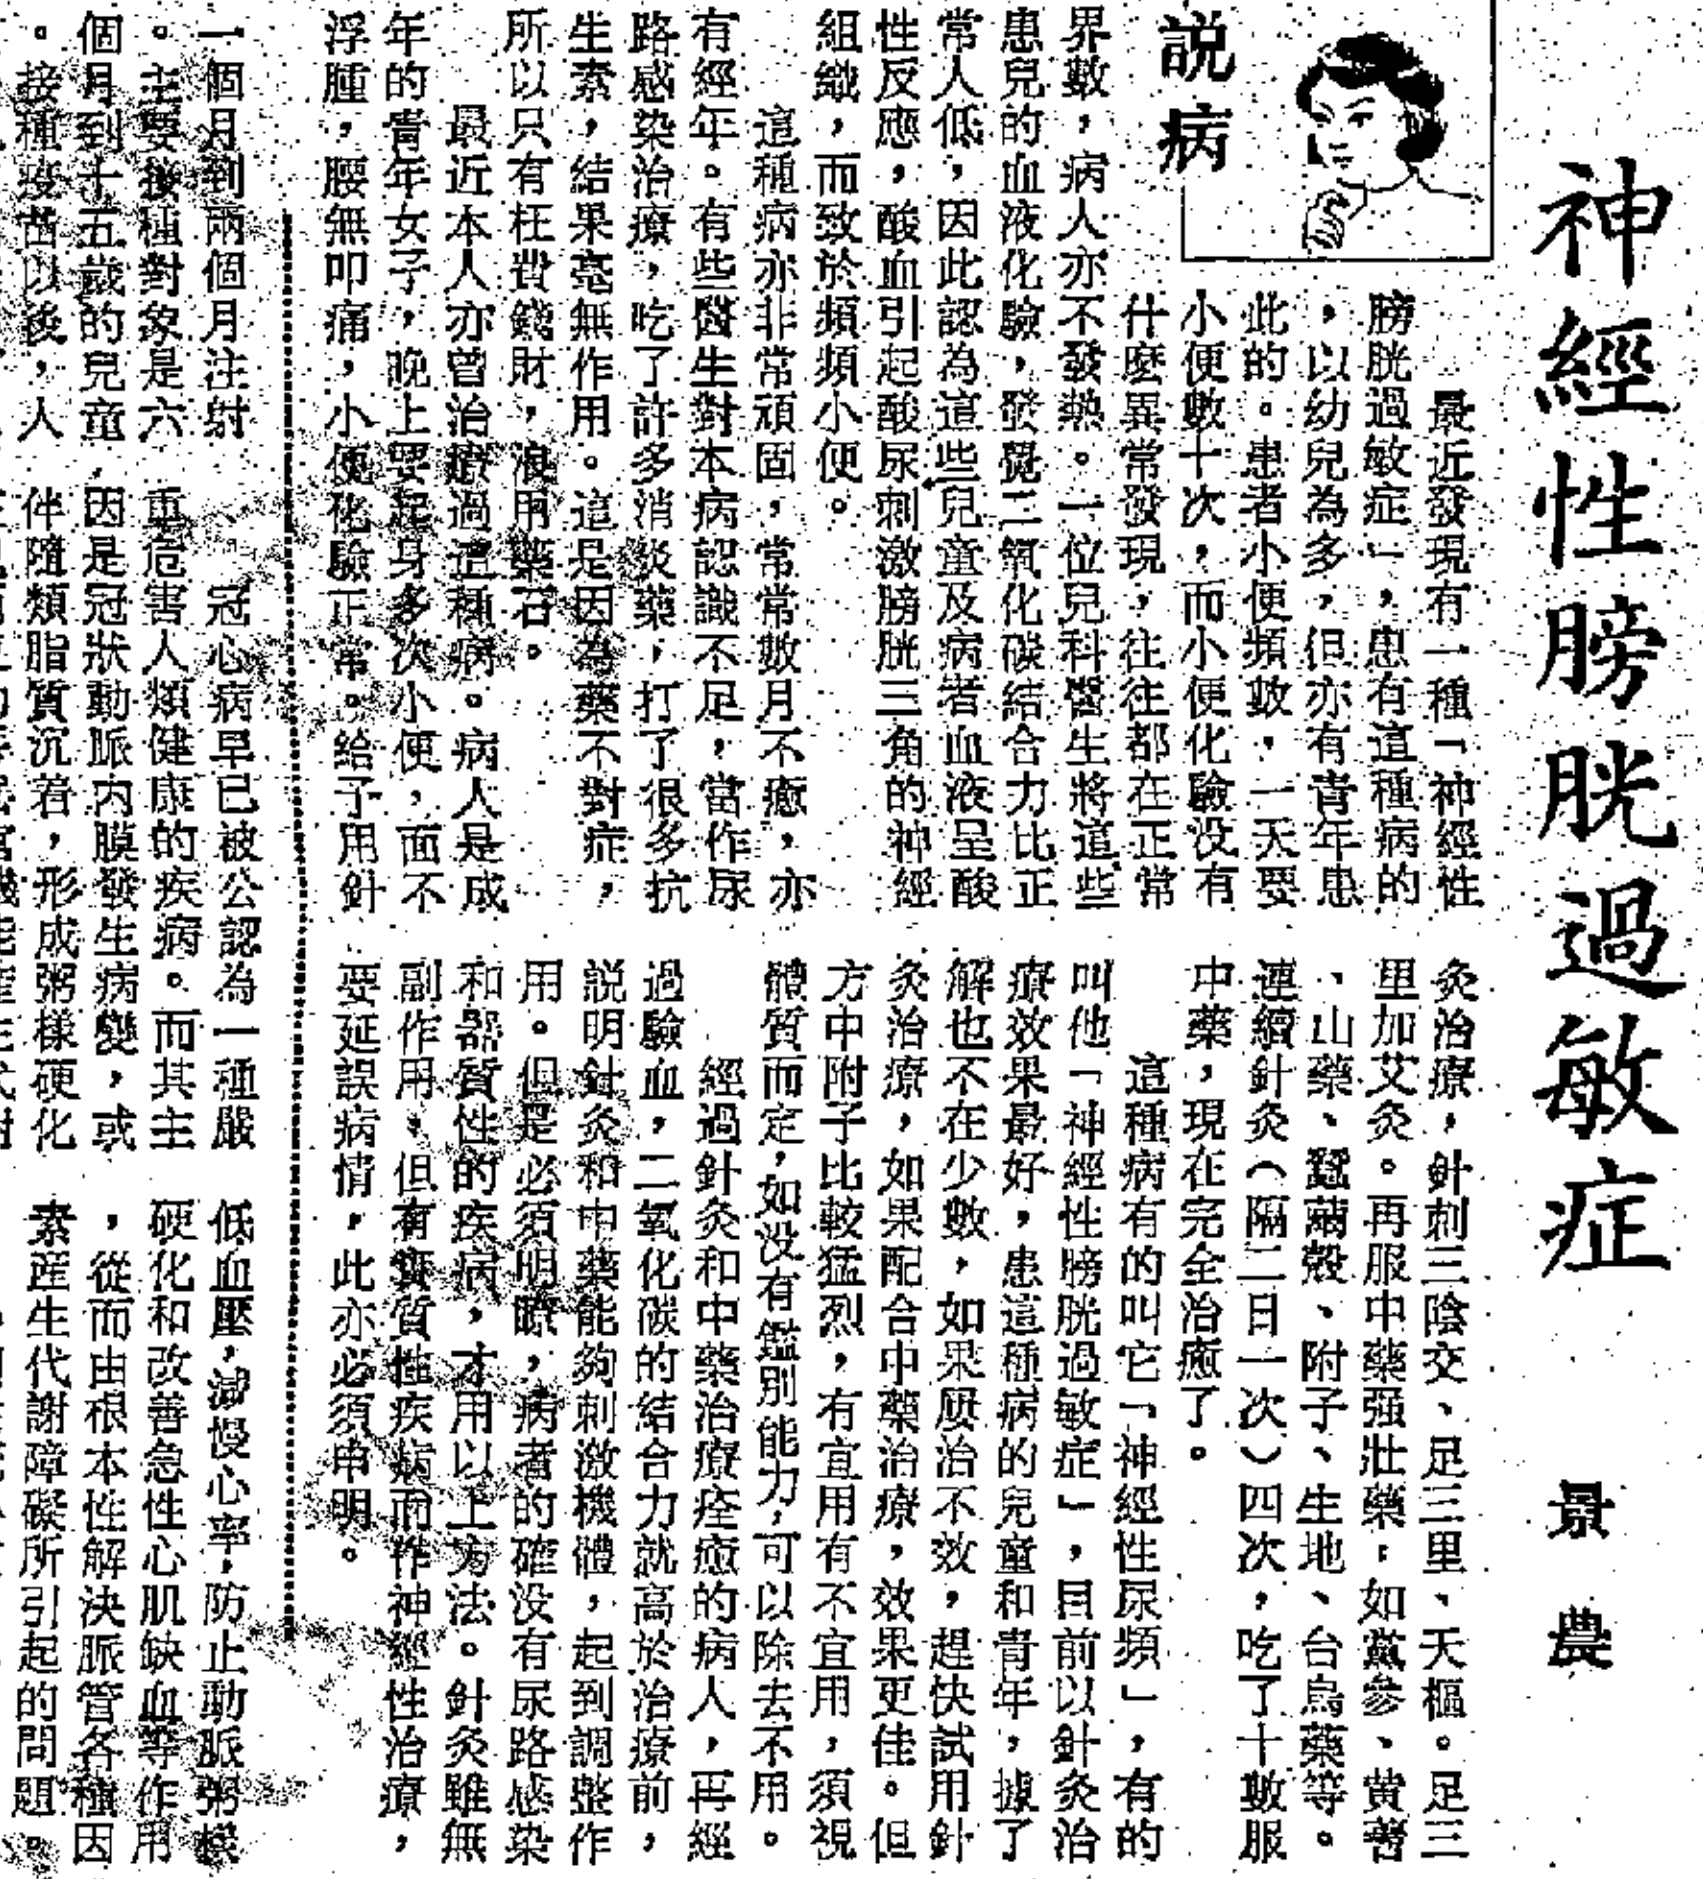 神經性膀胱過敏症
景農
説病
最近發現有一種「神經性
膀胱過敏症」，患有這種病的
，以幼兒為多，但亦有青年患
此的。患者小便頻數，一天要
小便數十次，而小便化驗没有
什麼異常發現，往往都在正常
界數，病人亦不發熱。一位兒科醫生將這些
患兒的血液化驗，發覺二氧化碳結合力比正
常人低，因此認為這些兒童及病者血液呈酸
性反應，酸血引起酸尿刺激膀胱三角的神經
組織，而致於頻頻小便。
這種病亦非常頑固，常常數月不癒，亦
有經年。有些醫生對本病認識不足，當作尿
路感染治療，吃了許多消炎藥，打了很多抗
生素，結果毫無作用。這是因為藥不對症，
所以只有枉費錢財，浪用藥石。
最近本人亦曾治療過這種病。病人是成
年的青年女子，晚上要起身多次小便，面不
浮腫，腰無叩痛，小便化驗正常。給予用針
灸治療，針刺三陰交、足三里、天樞。足三
里加艾灸。再服中藥强壯藥：如黨參、黄蓍
、山藥、蠶繭殼、附子、生地、台烏藥等。
連續針灸（隔二日一次）四次，吃了十數服
中藥，現在完全治癒了。
這種病有的叫它「神經性尿頻」，有的
叫他「神經性膀胱過敏症」，目前以針灸治
療效果最好，患這種病的兒童和青年，據了
解也不在少數，如果屢治不效，趕快試用針
灸治療，如果配合中藥治療，效果更佳。但
方中附子比較猛烈，有宜用有不宜用，須視
體質而定，如没有鑑別能力，可以除去不用。
經過針灸和中藥治療痊癒的病人，再經
過驗血，二氧化碳的結合力就高於治療前，
説明針灸和中藥能夠刺激機體，起到調整作
用。但是必須明瞭，病者的確没有尿路感染
和器質性的疾病，才用以上方法。針灸雖無
副作用，但有實質性疾病而作神經性治療，
要延誤病情，此亦必須申明。
一個月到兩個月注射
。主要接種對象是六
個月到十五歲的兒童，
。接種疫苗以後，人
冠心病早已被公認為一種嚴
重危害人類健康的疾病。而其主
因是冠狀動脈内膜發生病變，或
伴隨類脂質沉着，形成粥樣硬化
低血壓，減慢心率，防止動脈粥樣
硬化和改善急性心肌缺血等作用
，從而由根本性解決脈管各種因
素產生代謝障礙所引起的問題。